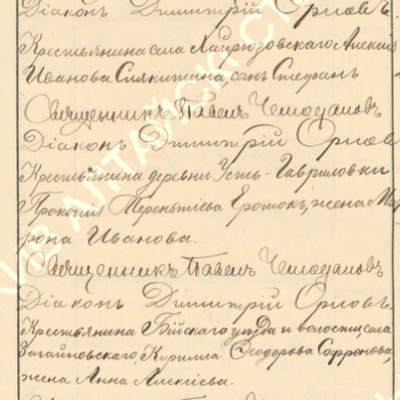 Діаконъ Димитрій Орловъ
Крестьянина села Лаурюзовскаго Алексія
Иванова сынъ Стефанъ
Священникъ Павелъ Чемодановъ
Діаконъ Димитрій Орловъ
Крестьянина деревни Усть-Гавриловки
Прокопія Терентіева жена Мат
рона Иванова.
Священникъ Павелъ Чемодановъ
Діаконъ Димитрій Орловъ.
Крестьянина Бійскаго уѣзда и волости, села
Кирилла Ѳеодорова Софронова,
жена Анна Алексіева.